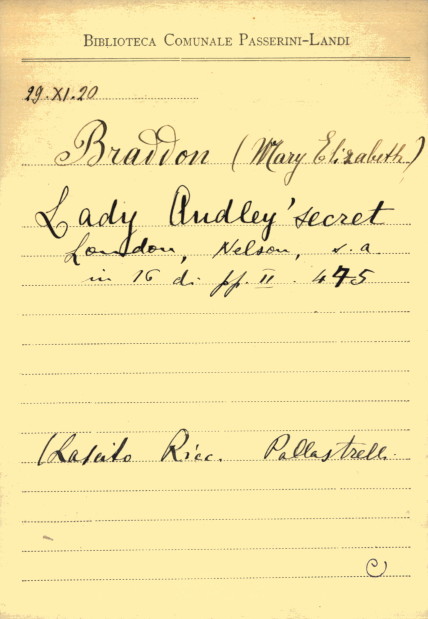 BIBLIOTECA COMUNALE PASSERINI-LANDI
29.XI.20
Braddon (Mary Elizabeth)
Lady Audley'secret
London, Nelson, s.a.
in 16 di pp. II. 475
(Lascito Ricc. Pallastrelli
C